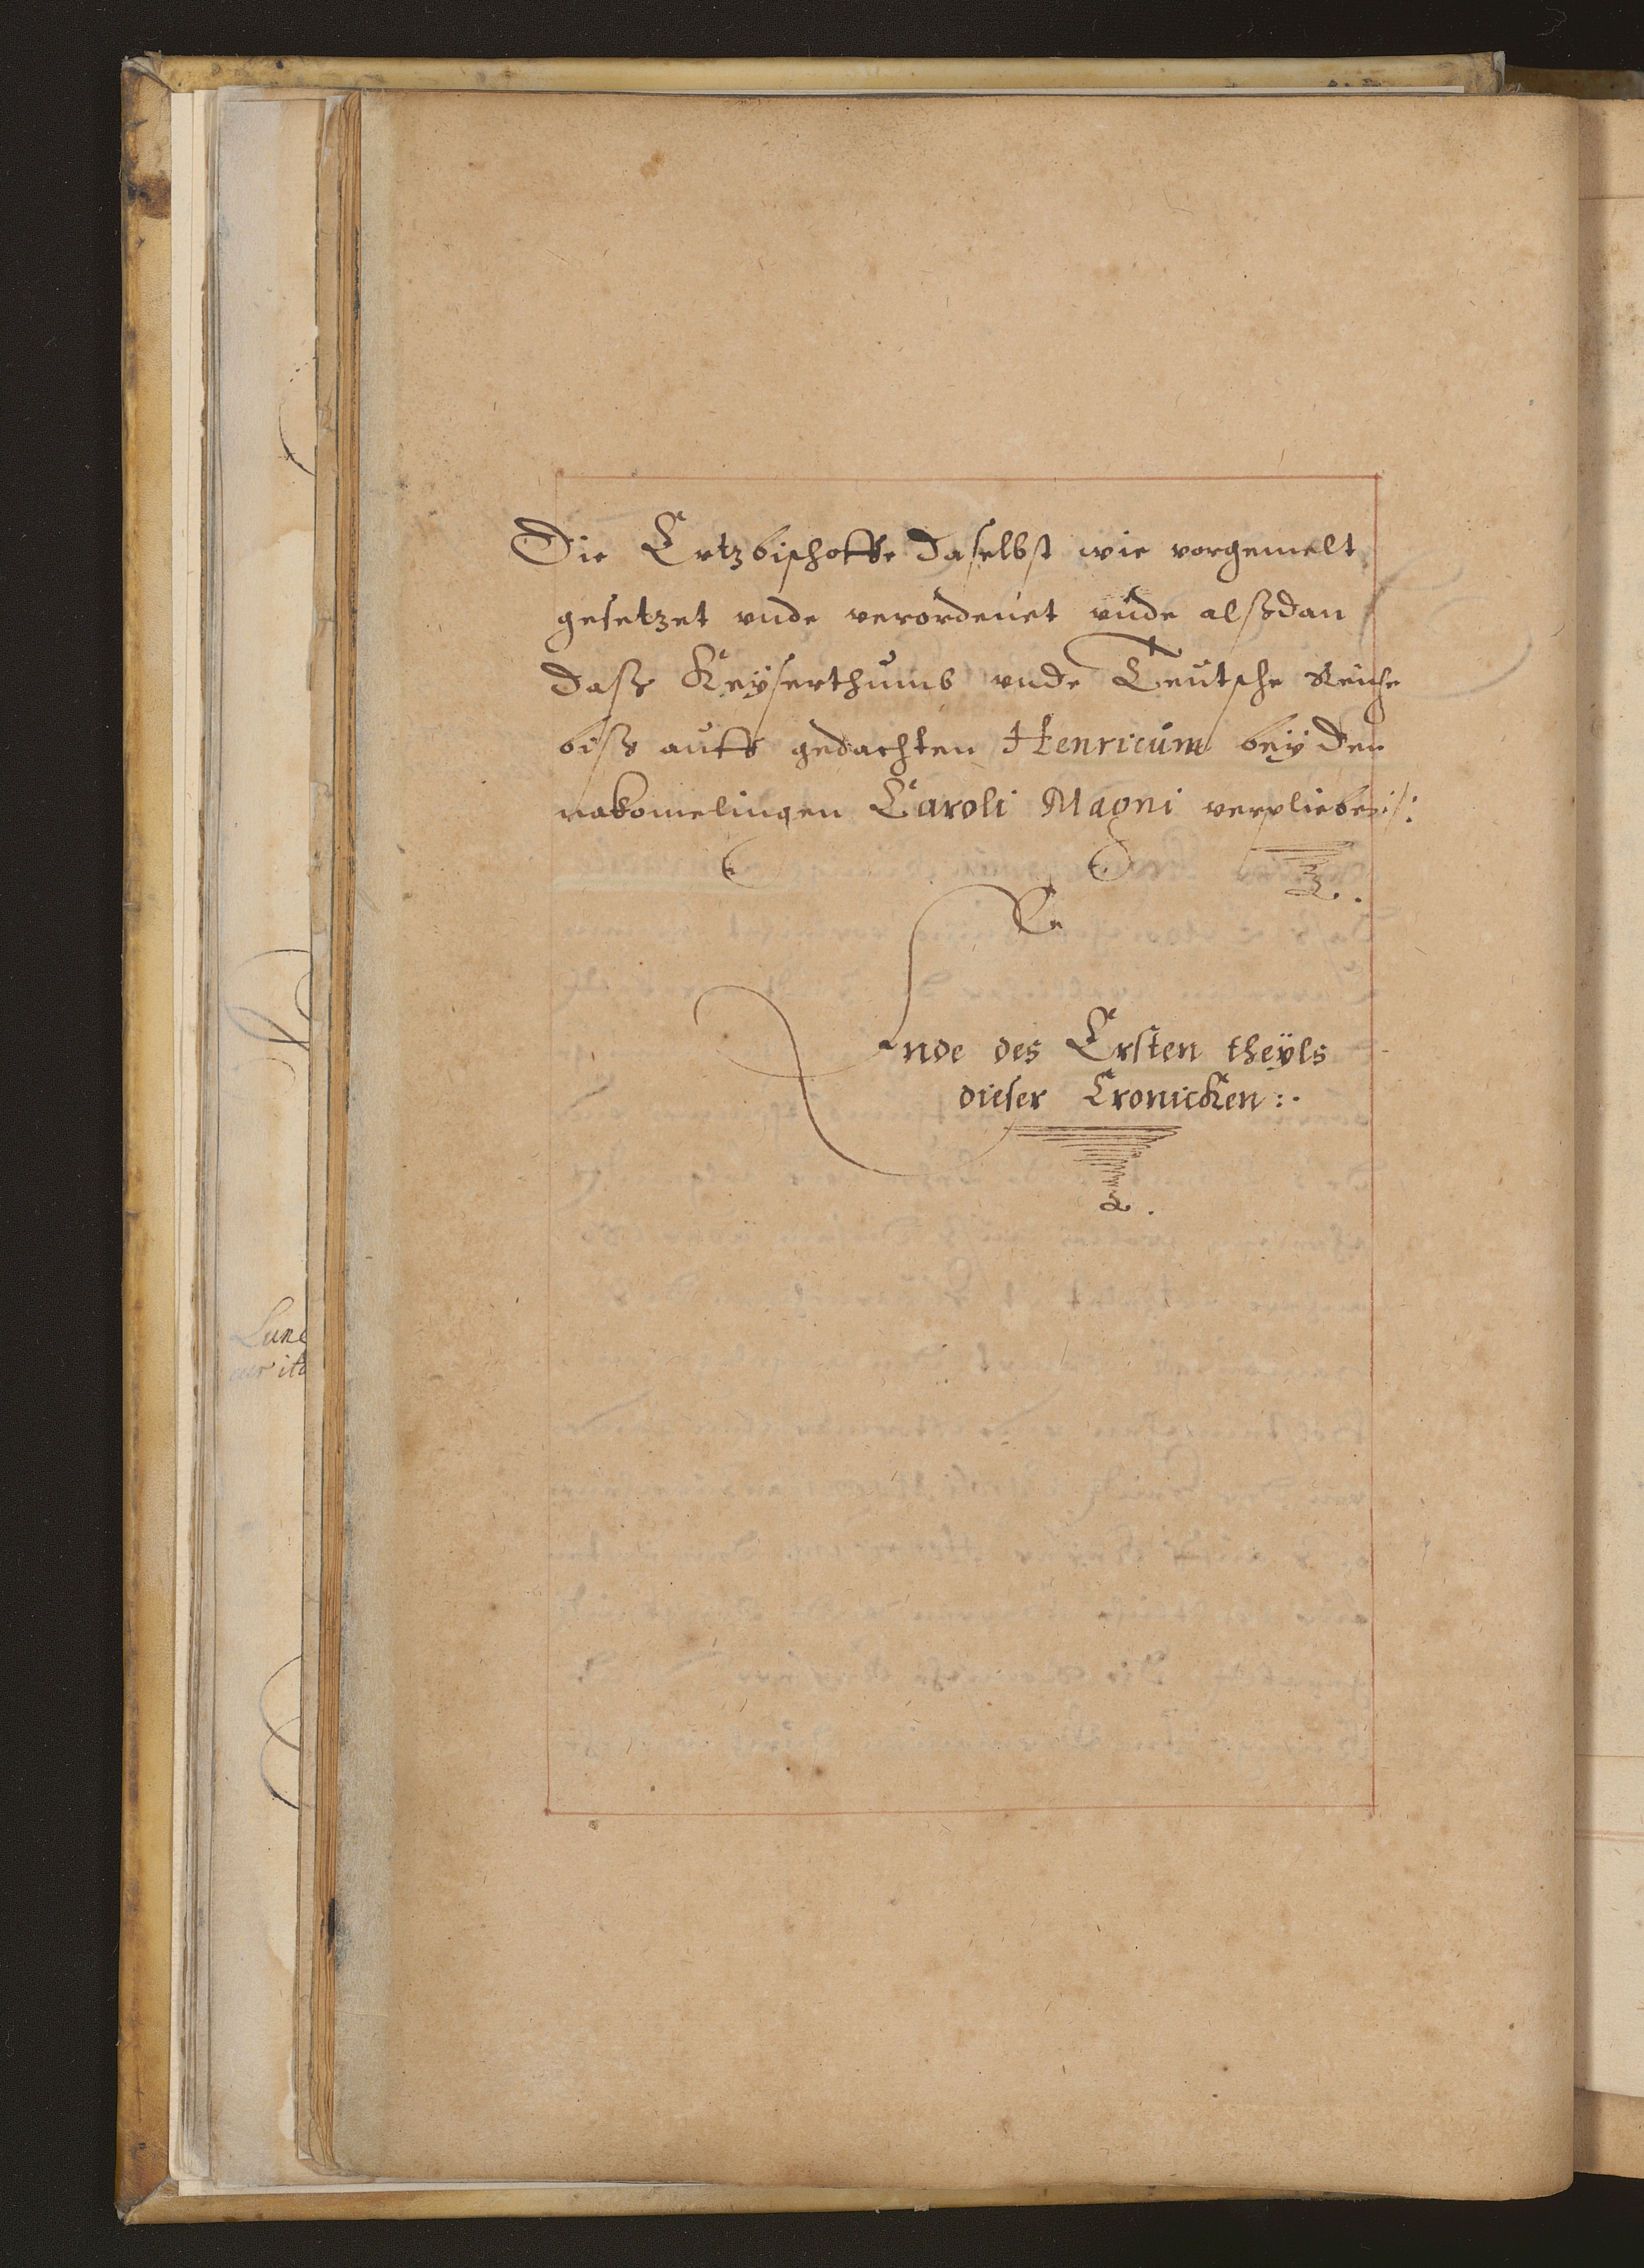 Die Ertzbischoffe daselbst wie vorgemelt
gesetzet vnde verordenet vnde alßdan
daß Keÿserthumb vnde Teutsche Reiche
biß auff gedachten Henricum beÿ den
nakomelingen Caroli Magni verpliebe
Ende des Ersten theÿls
dieser Cronicken :.
Lune